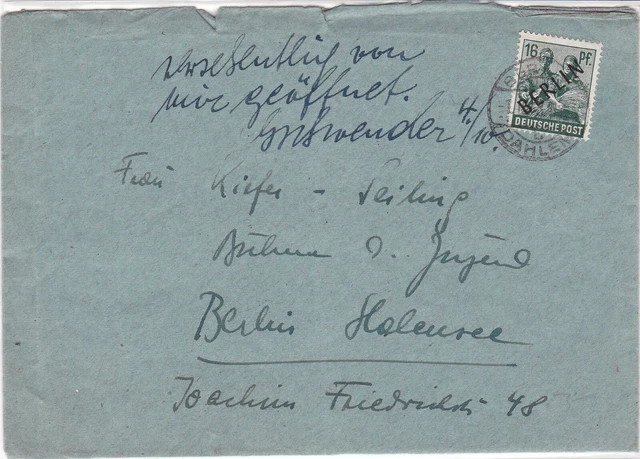 16 Pf.
BERLIN
DEUTSCHE POST
DAHLEM
versehentlich von
mir geöffnet.
4/10.
Frau Kiefer - Seiling
Bühne d. Jugend
Berlin Halensee
Joachim Friedrichstr 48